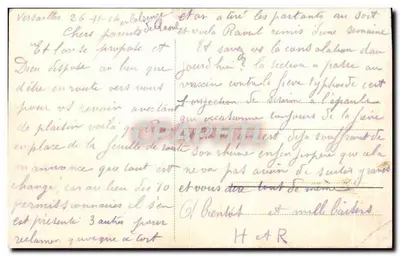 Versailles 26-11-16
Chers parents
Et l'on se propose et
Dieu dispose au lieu que
d'être en route vers vous
pour vous revoir avec tant
de plaisir voilà qu
en place de la feuille de route
m'annonce que tout est
changé, car au lieu des 70
permissionnaires il s'en
est présenté 3 autres pour
réclamer quoique à tort
et on a tiré les partants au sort
et voila Raoul remis d'une semaine
Et savez vous la consolation d'au
jourd'hui la section a passé au
vaccin contre la fièvre typhoïde c'est
l'injection de sérum à l'épaule
qui occasionne toujours de la fièvre
déjà souffrant de
son rhume enfin j'espère que cela
ne va pas avoir de suites graves
et vous dire tout de même
A Bientôt et mille baisers
H et R
CPAREIL